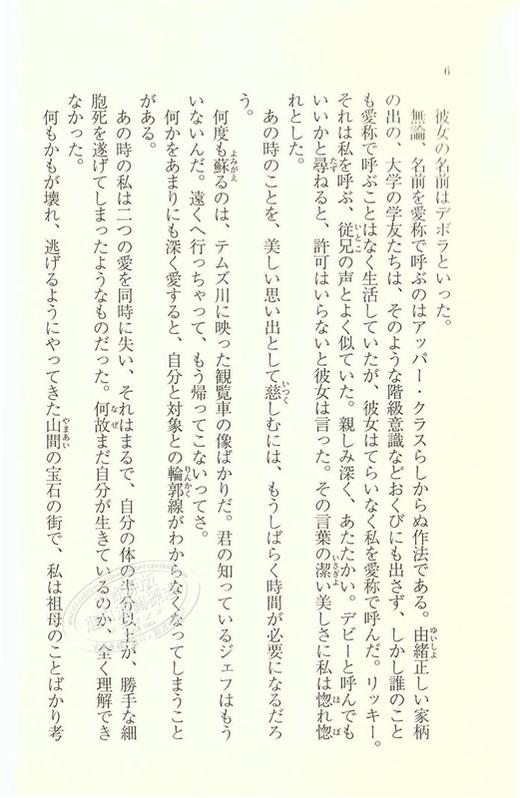 6
彼女の名前はデボラといった。
無論、名前を愛称で呼ぶのはアッパー・クラスらしからぬ作法である。由緒正しい家柄
の出の、大学の学友たちは、そのような階級意識などおくびにも出さず、しかし誰のこと
も愛称で呼ぶことはなく生活していたが、彼女はてらいなく私を愛称で呼んだ。リッキー。
それは私を呼ぶ、従兄の声とよく似ていた。親しみ深く、あたたかい。デビーと呼んでも
いいかと尋ねると、許可はいらないと彼女は言った。その言葉の潔い美しさに私は惚れ惚
れとした。
あの時のことを、美しい思い出として慈しむには、もうしばらく時間が必要になるだろ
う。
何度も蘇るのは、テムズ川に映った観覧車の像ばかりだ。君の知っているジェフはもう
いないんだ。遠くへ行っちゃって、もう帰ってこないってさ。
何かをあまりにも深く愛すると、自分と対象との輪郭線がわからなくなってしまうこと
がある。
あの時の私は二つの愛を同時に失い、それはまるで、自分の体の半分以上が、勝手な細
胞死を遂げてしまったようなものだった。何故まだ自分が生きているのか、全く理解でき
なかった。
何もかもが壊れ、逃げるようにやってきた山間の宝石の街で、私は祖母のことばかり考